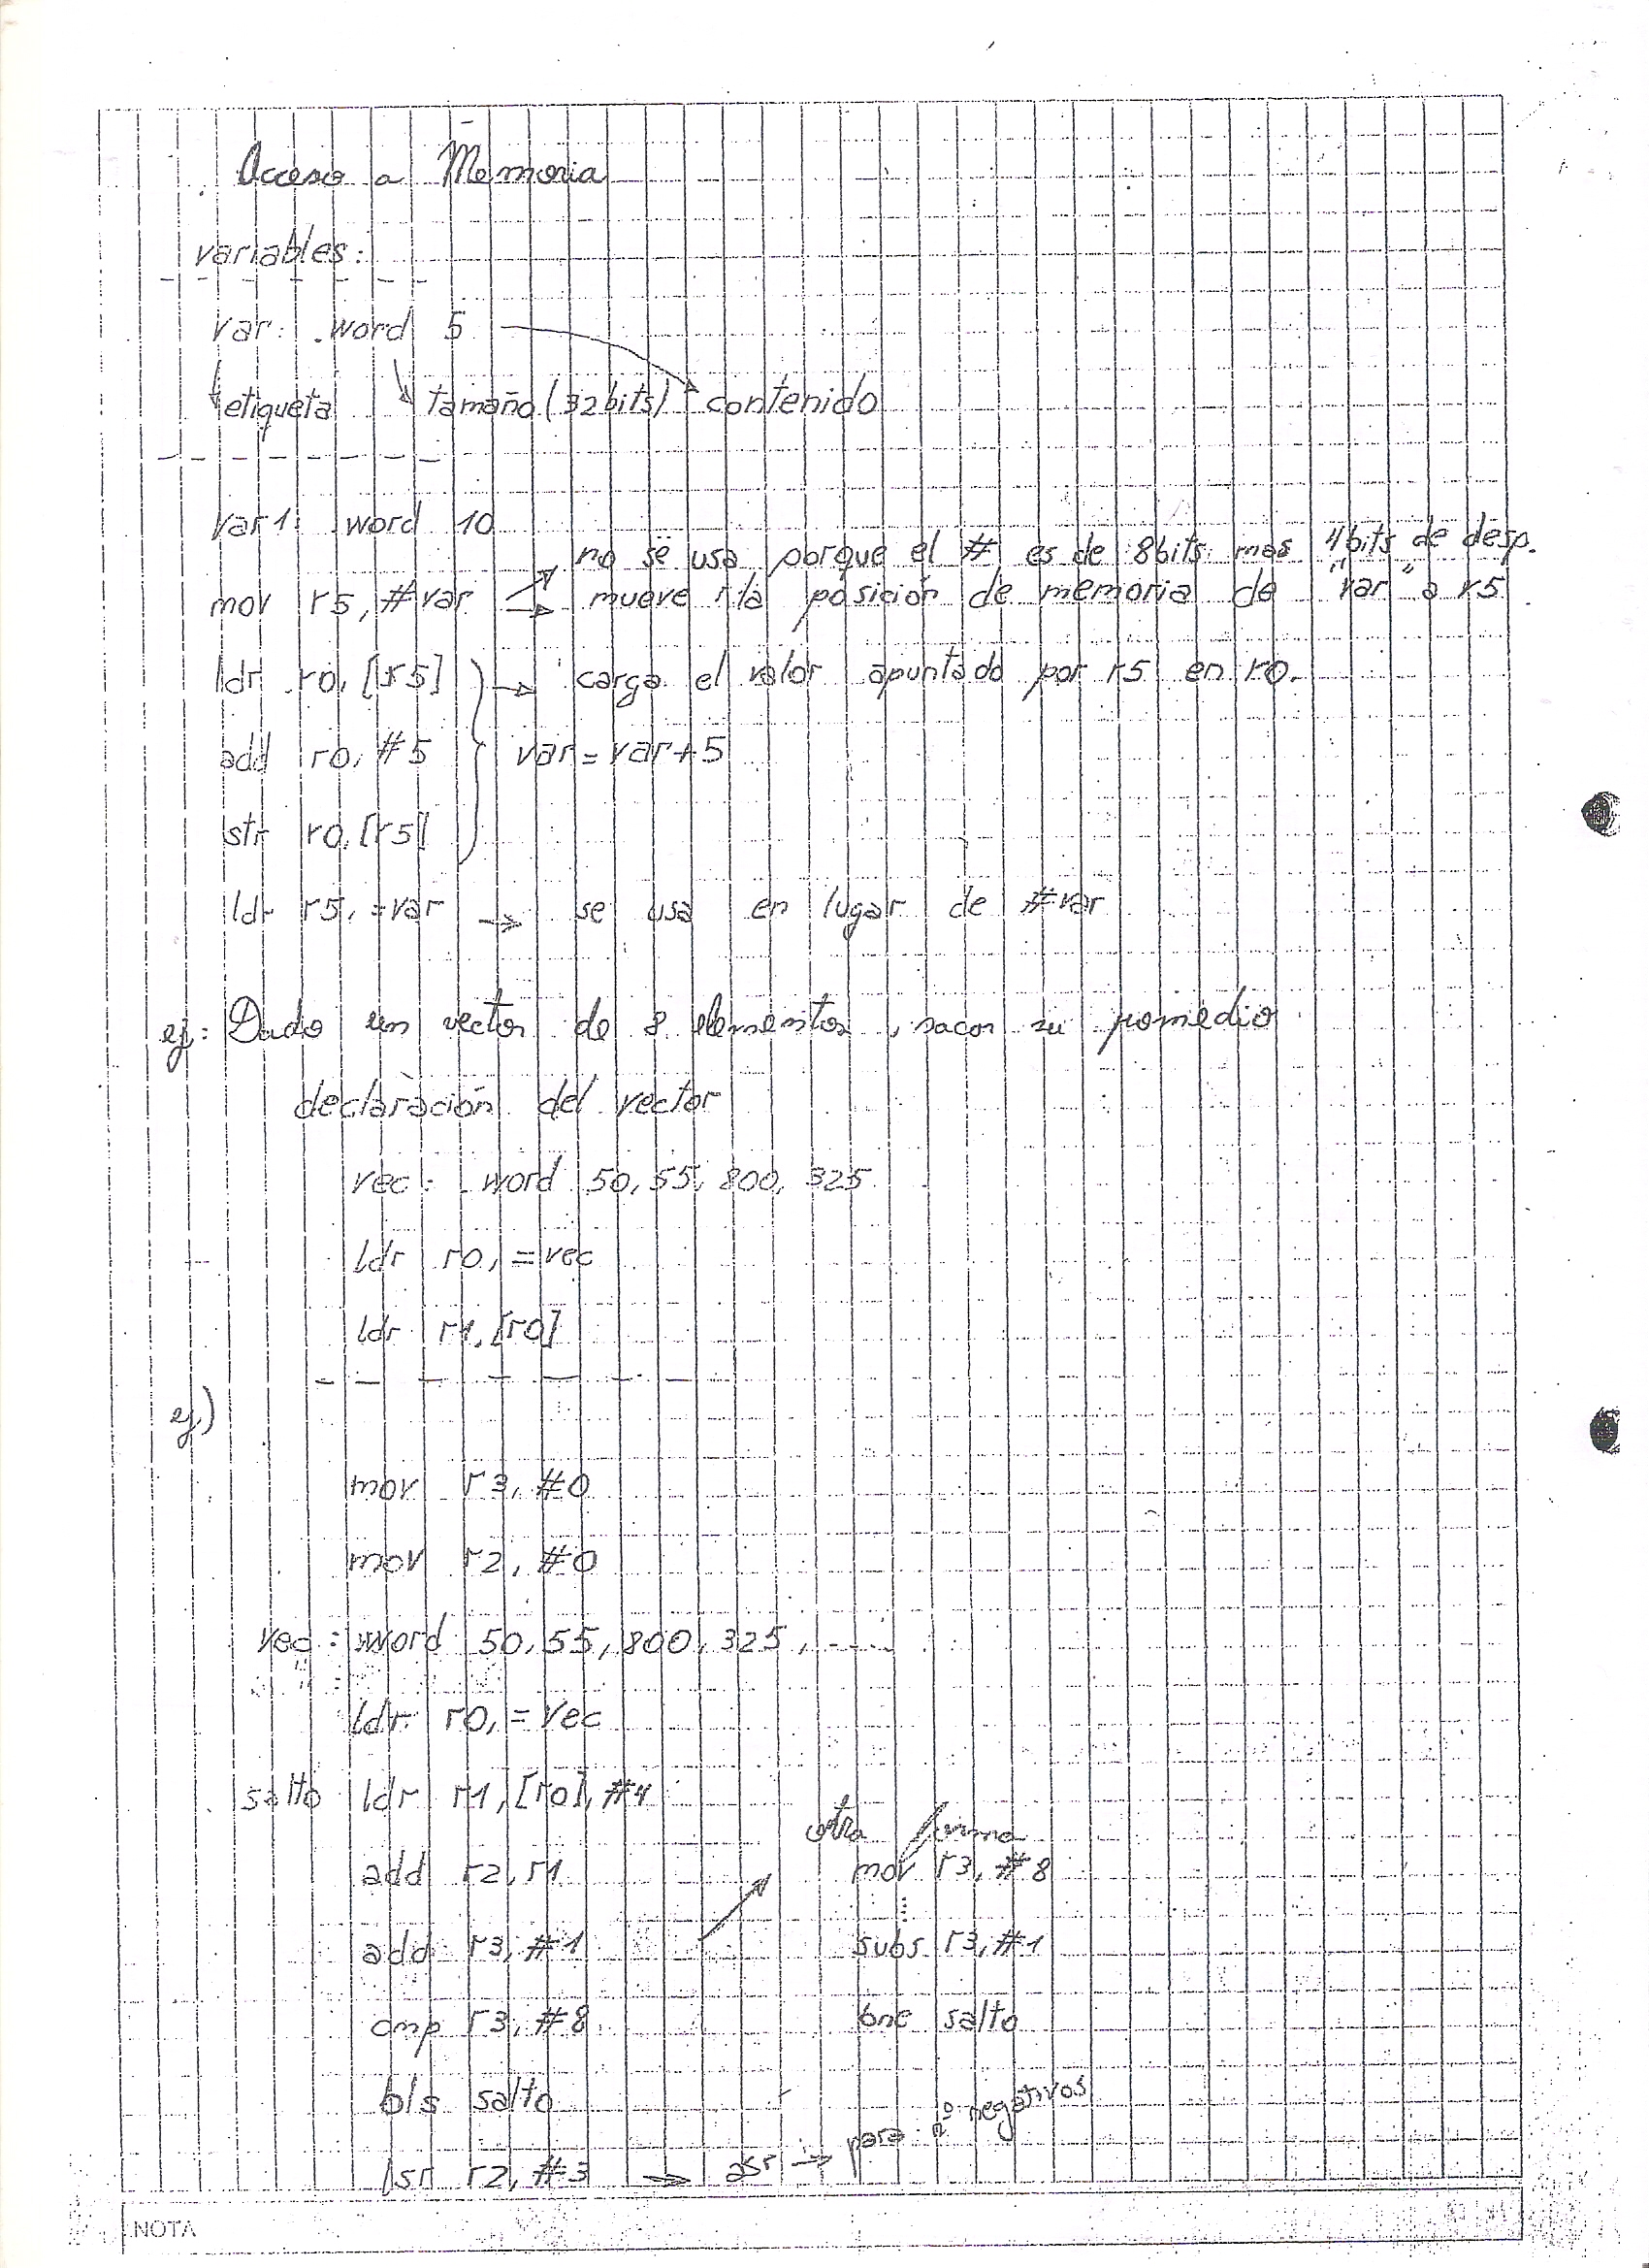 Acceso a Memoria
variables:
var: .word 5
etiqueta tamaño (32bits) contenido
var1: word 10
no se usa porque el # es de 8bits mas 4bits de desp.
mov r5, #var → mueve la posición de memoria de "var" a r5
ldr r0, [r5] → carga el valor apuntado por r5 en r0.
add r0, #5 var=var+5
str r0, [r5]
ldr r5, =var → se usa en lugar de #var
ej: Dado un vector de 8 elementos, sacar su pomedio
declaración del vector
vec: .word 50, 55, 800, 325
ldr r0, =vec
ldr r1, [r0]
ej)
mov r3, #0
mov r2, #0
vec: word 50, 55, 800, 325, ----
ldr r0, =vec
salto ldr r1, [r0], #4
otra forma
add r2, r1 mov r3, #8
add r3, #1 subs r3, #1
cmp r3, #8 bne salto
bls salto
lsr r2, #3 → asr → para nº negativos
NOTA